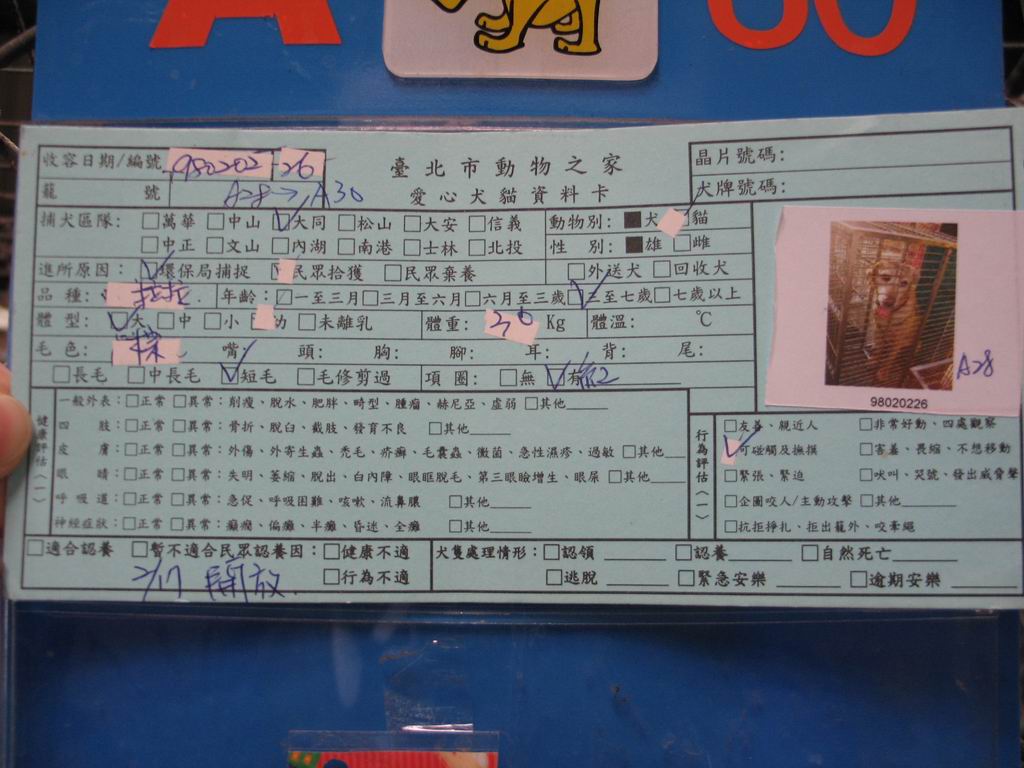 A 30
收容日期/編號 980202-26
籠 號 A28→A30
臺北市動物之家
愛心犬貓資料卡
晶片號碼:
犬牌號碼:
捕犬區隊: □萬華 □中山 ☑大同 □松山 □大安 □信義
□中正 □文山 □內湖 □南港 □士林 □北投
動物別: ■犬 □貓
性 別: ■雄 □雌
進所原因: ☑環保局捕捉 □民眾拾獲 □民眾棄養 □外送犬 □回收犬
品 種: 拉拉 年齡: □一至三月 □三月至六月 □六月至三歲 ☑三至七歲 □七歲以上
體 型: ☑大 □中 □小 □幼 □未離乳 體重: 30 Kg 體溫: ℃
毛 色: 棕 嘴: 頭: 胸: 腳: 耳: 背: 尾:
□長毛 □中長毛 ☑短毛 □毛修剪過 項 圈: □無 ☑有 紅
健康評估(一)
一般外表: □正常 □異常: 削瘦、脫水、肥胖、畸型、腫瘤、赫尼亞、虛弱 □其他
四 肢: □正常 □異常: 骨折、脫臼、截肢、發育不良 □其他
皮 膚: □正常 □異常: 外傷、外寄生蟲、禿毛、疥癬、毛囊蟲、黴菌、急性濕疹、過敏 □其他
眼 睛: □正常 □異常: 失明、萎縮、脫出、白內障、眼眶脫毛、第三眼瞼增生、眼屎 □其他
呼 吸 道: □正常 □異常: 急促、呼吸困難、咳嗽、流鼻膿 □其他
神經症狀: □正常 □異常: 癲癇、偏癱、半癱、昏迷、全癱 □其他
行為評估(一)
□友善、親近人 □非常好動、四處觀察
☑可碰觸及撫摸 □害羞、畏縮、不想移動
□緊張、緊迫 □吠叫、哭號、發出威脅聲
□企圖咬人/主動攻擊 □其他
□抗拒掙扎、拒出籠外、咬牽繩
A28
98020226
□適合認養 □暫不適合民眾認養因: □健康不適
□行為不適
2/17 開放
犬隻處理情形: □認領 □認養 □自然死亡
□逃脫 □緊急安樂 □逾期安樂